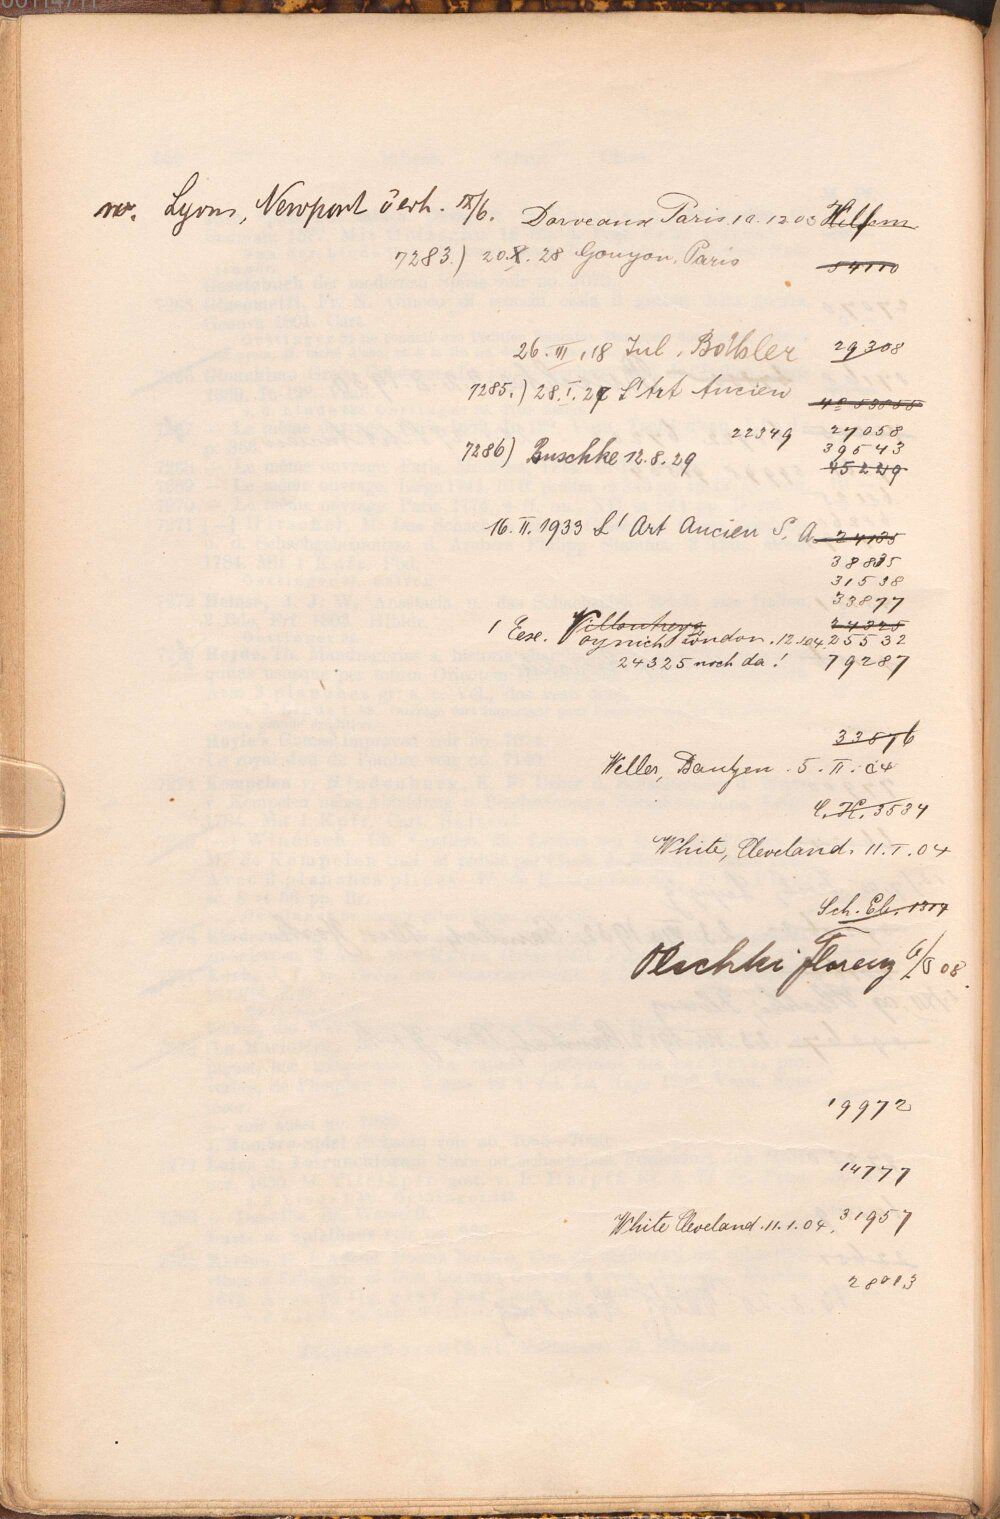 Lyons, Newport överh. IX/6. Dorveaux Paris 10.12.03 Hilfsm
7283.) 20.X.28 Gouyon, Paris 54110
26.III.18 Jul. Böhler 29308
7285.) 28.I.27 L'Art Ancien
22349 27058
39543
7286) Buschke 12.8.29 45229
16.II.1933 L'Art Ancien S.A. 24135
38835
31538
33877
24325
1 Exe. London. 12.1.04 25532
24325 noch da! 79287
33876
Weller, Bautzen. 5.II.04
C.H. 3534
White, Cleveland. 11.I.04
Sch. Eb. 1314
Olschki Florenz 6/V 08.
19972
14777
White Cleveland. 11.1.04. 31957
28013